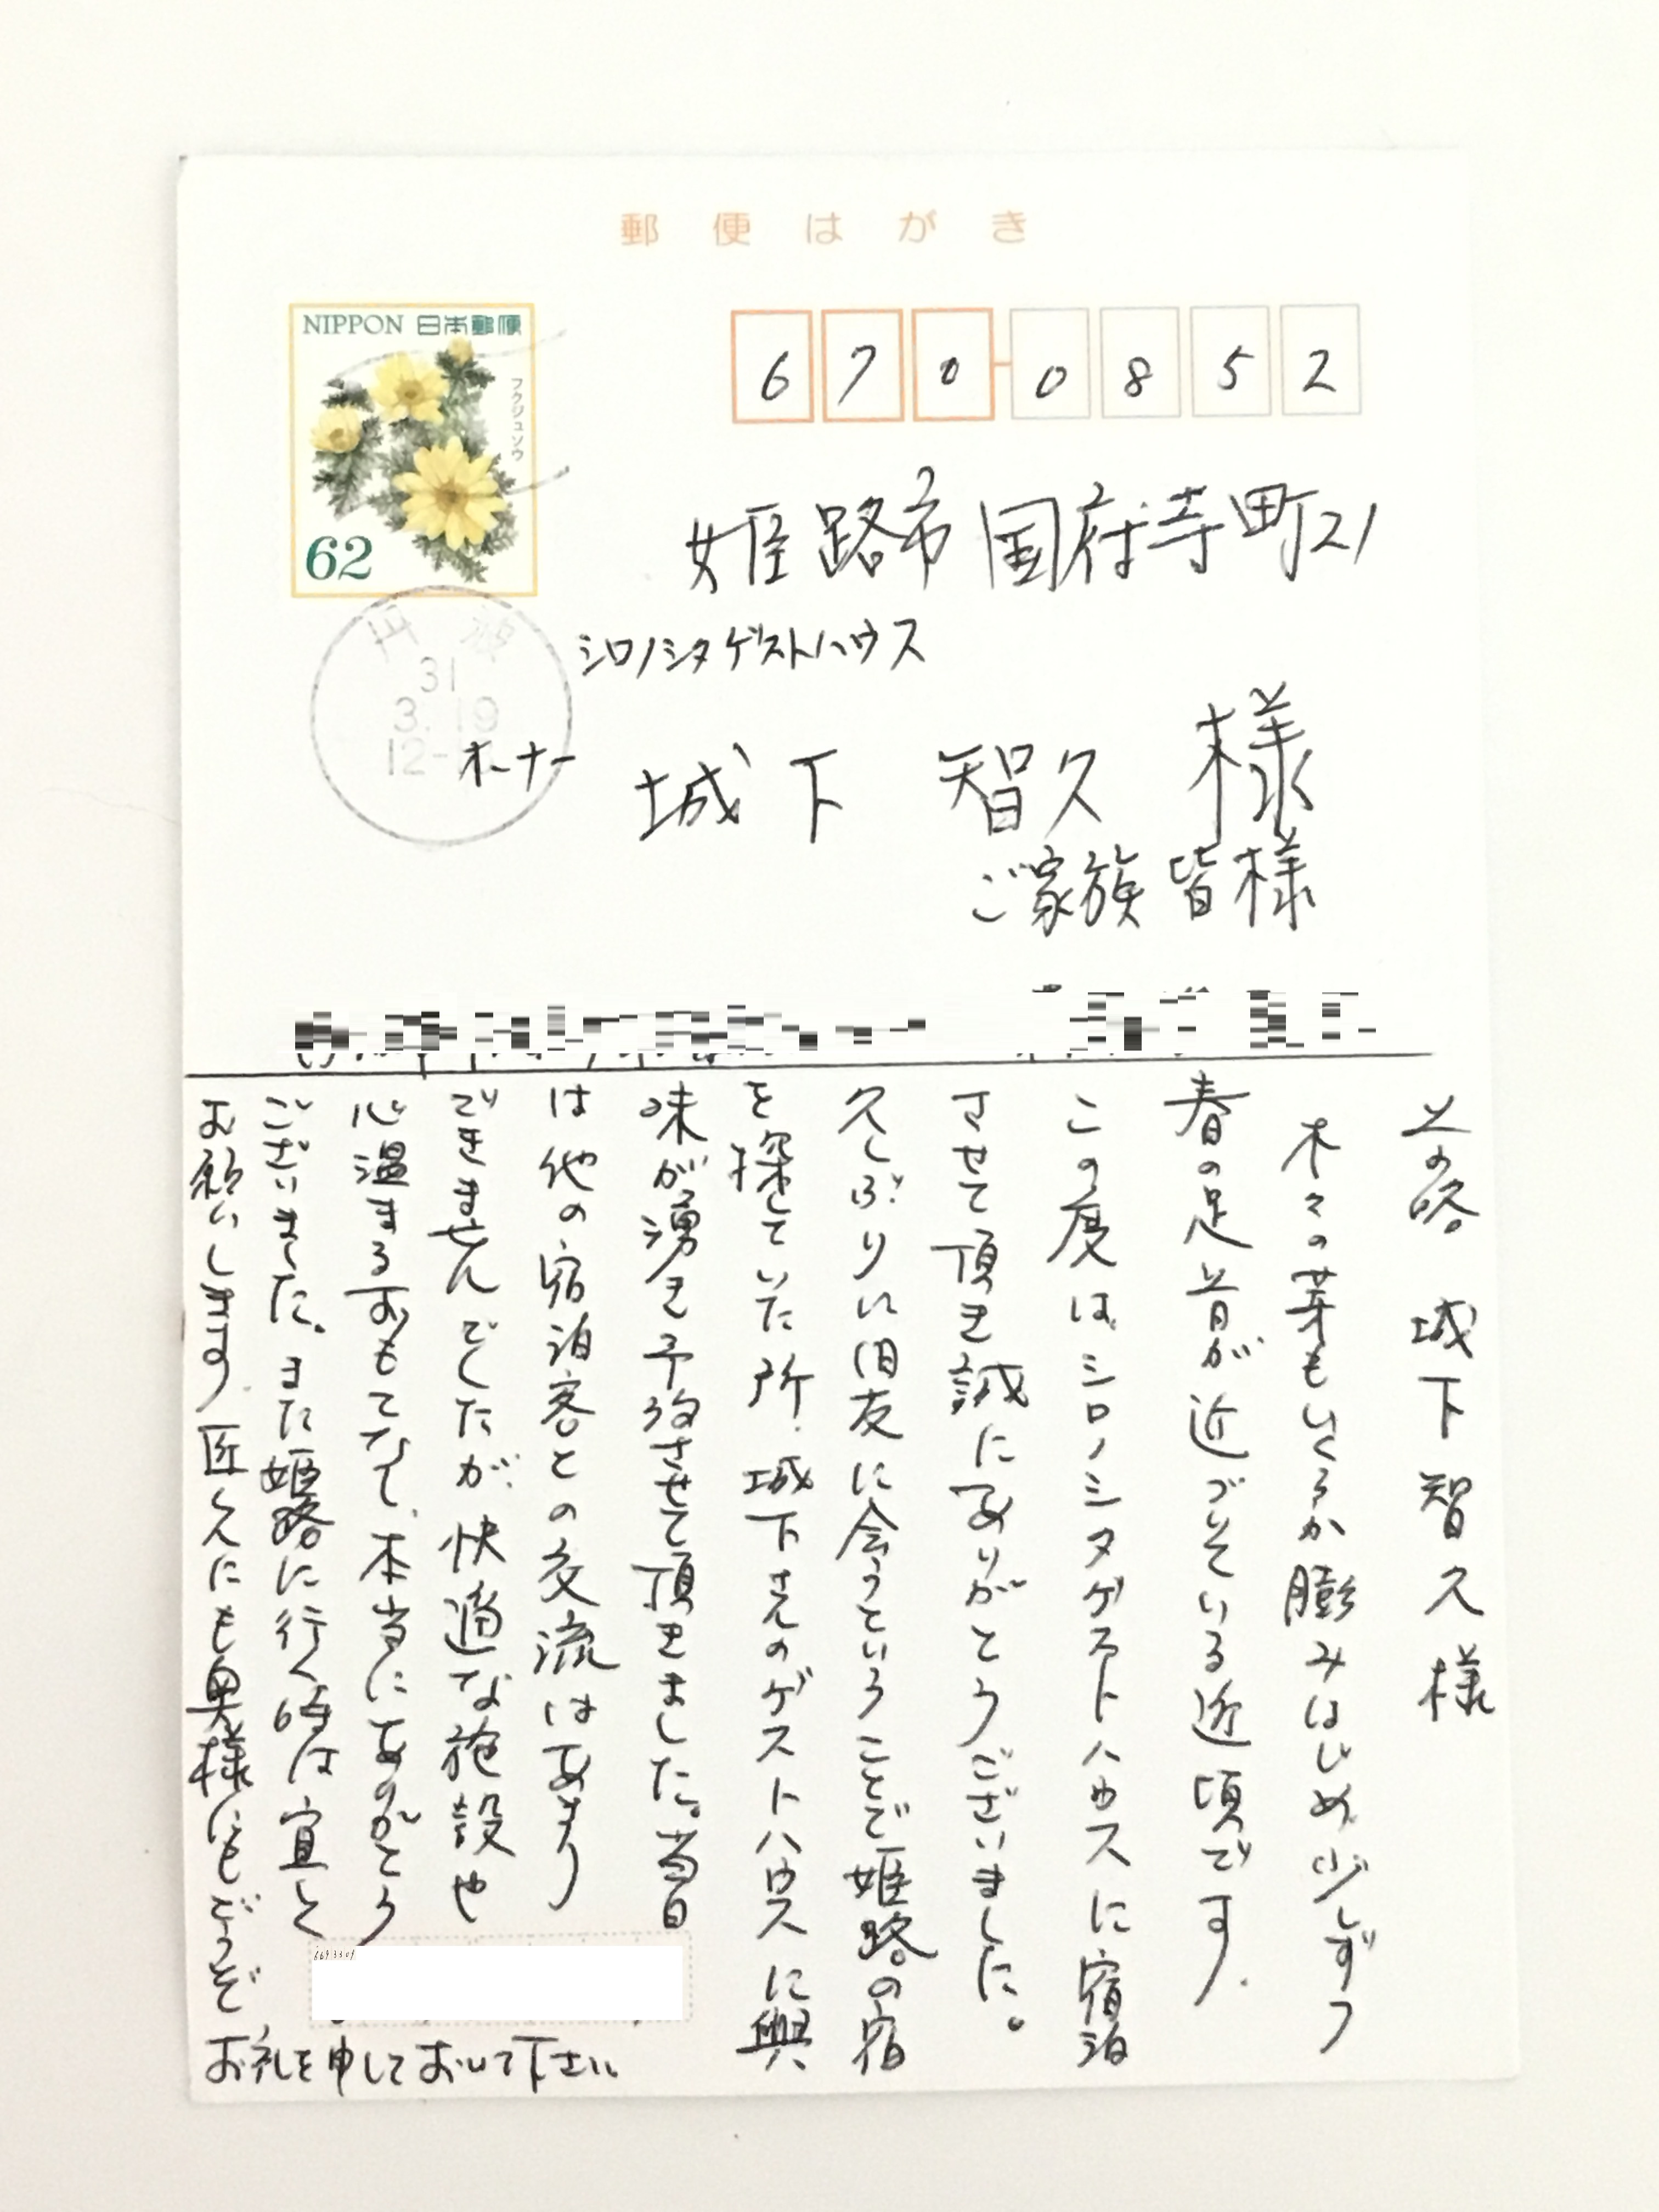 郵便はがき
NIPPON 日本郵便
フクジュソウ
62
670-0852
姫路市国府寺町21
シロノシタゲストハウス
丹波
31
3.19
12-
オーナー 城下 智久 様
ご家族 皆様
前略 城下智久様
木々の芽もいくらか膨みはじめ少しずつ
春の足音が近づいている近頃です。
この度はシロノシタゲストハウスに宿泊
させて頂き誠にありがとうございました。
久しぶりに旧友に会うということで姫路の宿
を探していた所、城下さんのゲストハウスに興
味が湧き予約させて頂きました。当日
は他の宿泊客との交流はあまり
できませんでしたが、快適な施設や
心温まるおもてなし、本当にありがとう
ございました。また姫路に行く時は宜しく
お願いします。匠くんにも奥様にもどうぞ
お礼を申しておいて下さい